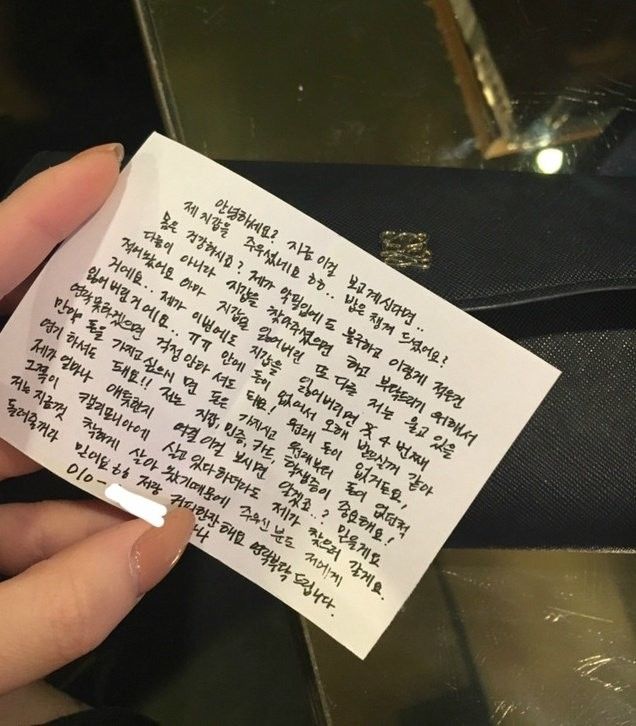 안녕하세요? 지금 이걸 보고계신다면..
제 지갑을 주우셨네요 ㅎㅎ.. 밥은 챙겨 드셨어요?
몸은 건강하시죠? 제가 악필임에도 불구하고 이렇게 적은건
다름이 아니라 지갑을 찾아주셨으면 하고 부탁드리기 위해서
적어봤어요 아마 지갑을 잃어버린 또 다른 저는 울고 있을
거에요.. 제가 이번에도 지갑을 잃어버리면 꼭 4번째
잃어버린거에요.. ㅠㅠ 안에 돈이 없어서 오래 같아
연락못하겠으면 걱정 안하셔도 돼요! 원래 돈이 없거든요,
만약 돈을 가지고 싶으시면 돈은 가지시고 원래부터 돈이 없던척
연기 하셔도 돼요!! 저는 지갑, 민증, 카드, 학생증이 중요해요!
제가 얼마나 애틋한지 이걸 보시면 알겠죠..?
그쪽이 캘리포니아에 살고 있다 하더라도 제가 찾으러 갈게요.
저는 지금껏 착하게 살아 왔기때문에 주우신 분도 저에게
돌려줄거라 믿어요 ㅎㅎ 저랑 커피한잔 해요 연락부탁 드립니다.
010-